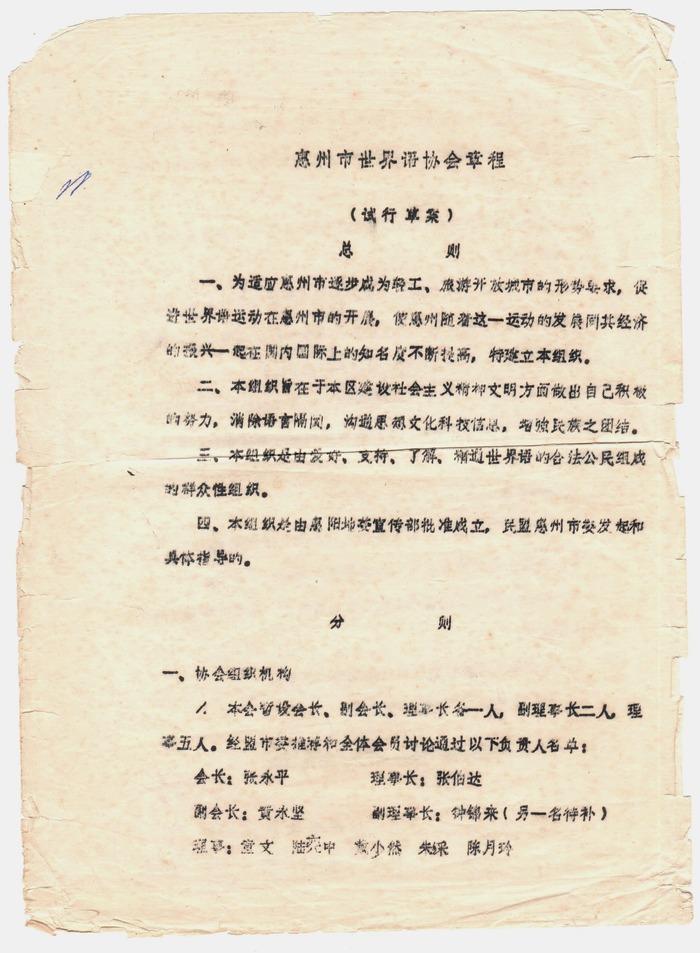 惠州市世界语协会章程
（试行草案）
总 则
一、为适应惠州市逐步成为轻工、旅游开放城市的形势要求，促
进世界语运动在惠州市的开展，使惠州随着这一运动的发展同其经济
的振兴一起在国内国际上的知名度不断提高，特建立本组织。
二、本组织旨在于本区建设社会主义精神文明方面做出自己积极
的努力，消除语言隔阂，沟通思想文化科技信息，增强民族之团结。
三、本组织是由爱好、支持、了解、精通世界语的合法公民组成
的群众性组织。
四、本组织是由惠阳地委宣传部批准成立，民盟惠州市委发起和
具体指导的。
分 则
一、协会组织机构
1. 本会暂设会长、副会长、理事长各一人，副理事长二人，理
事五人。经盟市委推荐和全体会员讨论通过以下负责人名单：
会长：张永平 理事长：张伯达
副会长：黄永坚 副理事长：钟锦来（另一名待补）
理事： 文 陆奕中 小然 朱綵 陈月玲